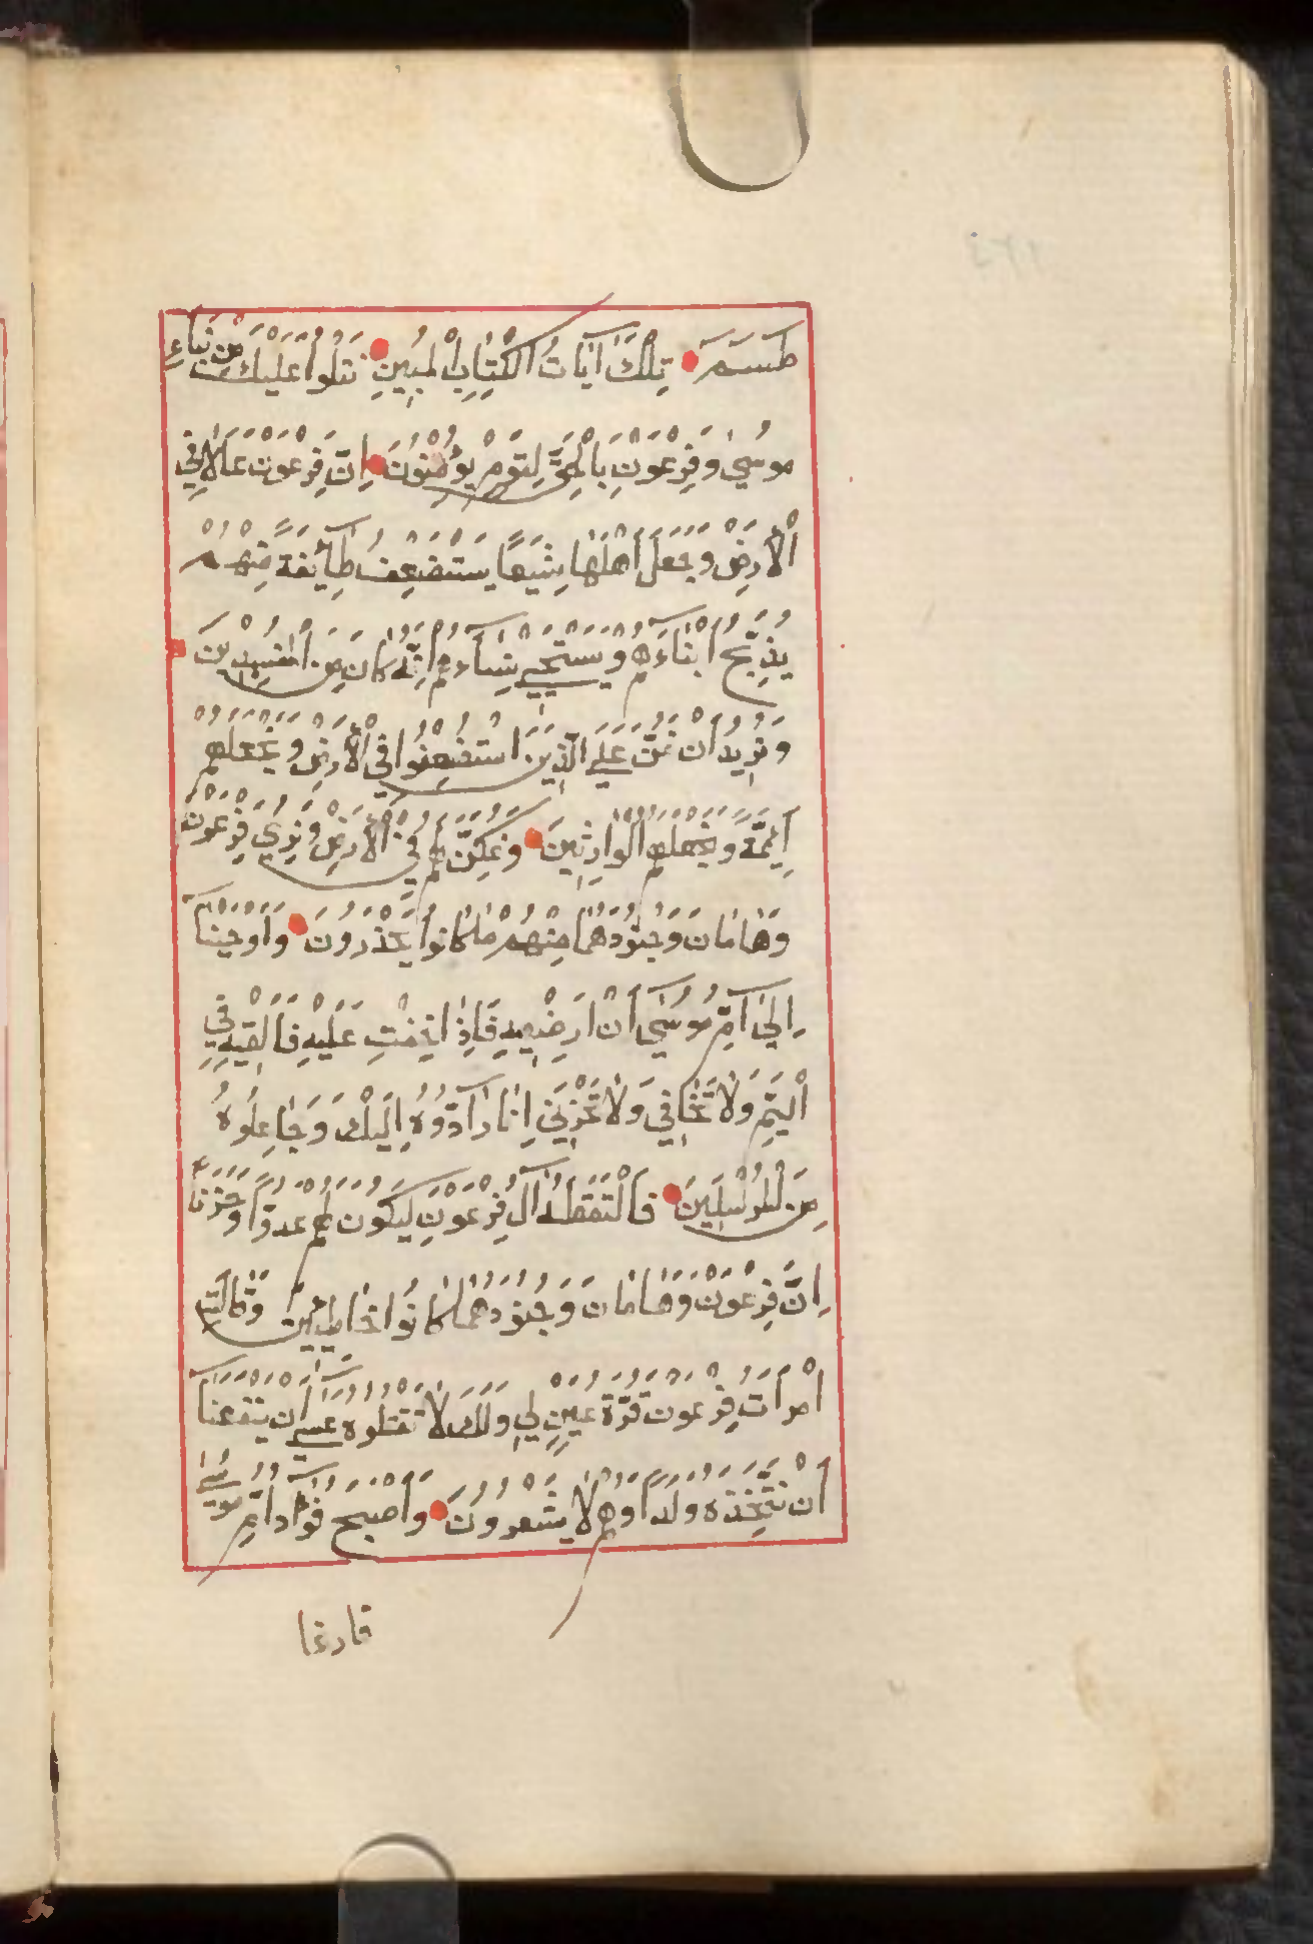 طٓسٓمٓ تِلْكَ اٰيَاتُ الْكِتَابِ الْمُبِينِ نَتْلُوا عَلَيْكَ مِنْ نَبَاءِ
مُوسٰى وَفِرْعَوْنَ بِالْحَقِّ لِقَوْمٍ يُؤْمِنُونَ اِنَّ فِرْعَوْنَ عَلَا فِي
الْاَرْضِ وَجَعَلَ اَهْلَهَا شِيَعًا يَسْتَضْعِفُ طَائِفَةً مِنْهُمْ
يُذَبِّحُ اَبْنَاءَهُمْ وَيَسْتَحْيِي نِسَاءَهُمْ اِنَّهُ كَانَ مِنَ الْمُفْسِدِينَ
وَنُرِيدُ اَنْ نَمُنَّ عَلَى الَّذِينَ اسْتُضْعِفُوا فِي الْاَرْضِ وَنَجْعَلَهُمْ
اَئِمَّةً وَنَجْعَلَهُمُ الْوَارِثِينَ وَنُمَكِّنَ لَهُمْ فِي الْاَرْضِ وَنُرِيَ فِرْعَوْنَ
وَهَامَانَ وَجُنُودَهُمَا مِنْهُمْ مَا كَانُوا يَحْذَرُونَ وَاَوْحَيْنَا
اِلٰى اُمِّ مُوسٰى اَنْ اَرْضِعِيهِ فَاِذَا خِفْتِ عَلَيْهِ فَاَلْقِيهِ فِي
الْيَمِّ وَلَا تَخَافِي وَلَا تَحْزَنِي اِنَّا رَادُّوهُ اِلَيْكِ وَجَاعِلُوهُ
مِنَ الْمُرْسَلِينَ فَالْتَقَطَهُ اٰلُ فِرْعَوْنَ لِيَكُونَ لَهُمْ عَدُوًّا وَحَزَنًا
اِنَّ فِرْعَوْنَ وَهَامَانَ وَجُنُودَهُمَا كَانُوا خَاطِئِينَ وَقَالَتِ
امْرَاَتُ فِرْعَوْنَ قُرَّةُ عَيْنٍ لِي وَلَكَ لَا تَقْتُلُوهُ عَسٰى اَنْ يَنْفَعَنَا
اَوْ نَتَّخِذَهُ وَلَدًا وَهُمْ لَا يَشْعُرُونَ وَاَصْبَحَ فُؤَادُ اُمِّ مُوسٰى
فارغا